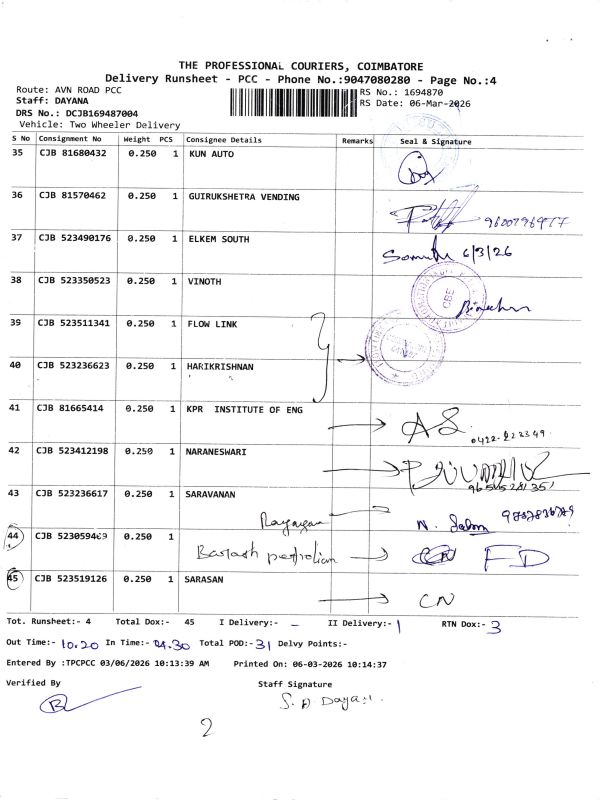 THE PROFESSIONAL COURIERS, COIMBATORE
Delivery Runsheet - PCC - Phone No.:9047080280 - Page No.:4
Route: AVN ROAD PCC
Staff: DAYANA
DRS No.: DCJB169487004
Vehicle: Two Wheeler Delivery
RS No.: 1694870
RS Date: 06-Mar-2026
S No Consignment No Weight PCS Consignee Details Remarks Seal & Signature
35 CJB 81680432 0.250 1 KUN AUTO
36 CJB 81570462 0.250 1 GUIRUKSHETRA VENDING
37 CJB 523490176 0.250 1 ELKEM SOUTH 6/3/26
38 CJB 523350523 0.250 1 VINOTH CBE
39 CJB 523511341 0.250 1 FLOW LINK
40 CJB 523236623 0.250 1 HARIKRISHNAN
41 CJB 81665414 0.250 1 KPR INSTITUTE OF ENG AS
42 CJB 523412198 0.250 1 NARANESWARI
43 CJB 523236617 0.250 1 SARAVANAN
44 0.250 1 FD
45 CJB 523519126 0.250 1 SARASAN
CN
Tot. Runsheet:- 4 Total Dox:- 45 I Delivery:- - II Delivery:- 1 RTN Dox:- 3
Out Time:- 10.20 In Time:- 04.30 Total POD:- 31 Delvy Points:-
Entered By :TPCPCC 03/06/2026 10:13:39 AM Printed On: 06-03-2026 10:14:37
Verified By Staff Signature
2